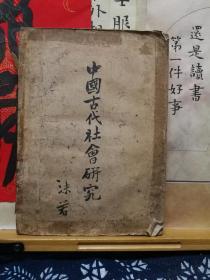 中國古代社會研究
沫若
還是讀書
第一件好事